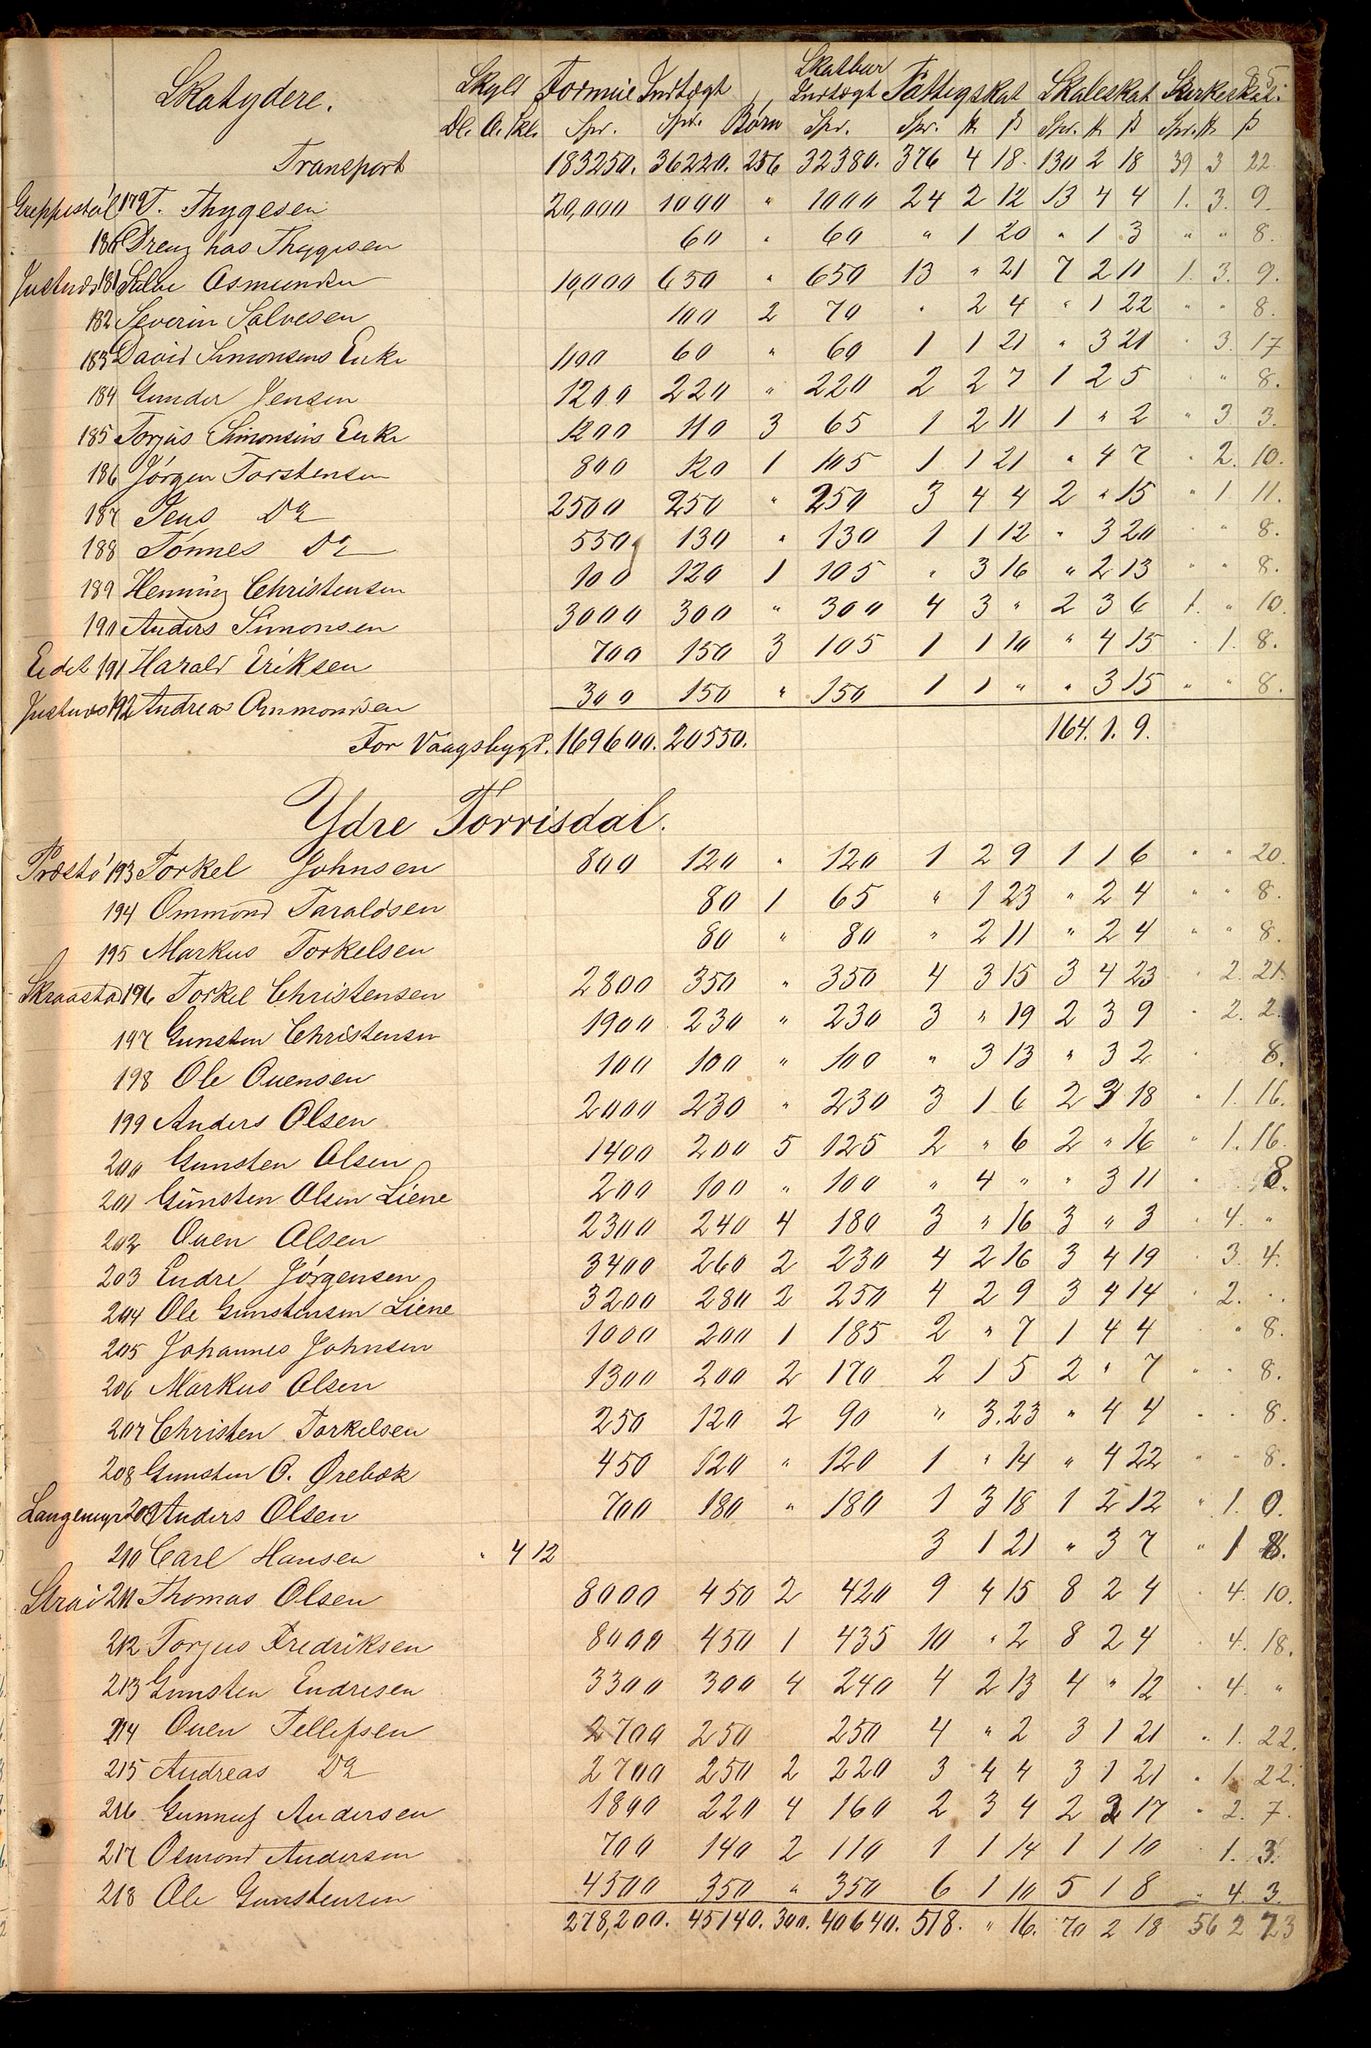 Skatydere. Skyld Formue Indtægt Børn Skatbar Indtægt Fattigskat Skoleskat Kirkeskat.
Dl. O. Sk. Spr. Spr. Spr. Spr. Ԟ ß Spr. Ԟ ß Spr. Ԟ ß
Transport 183250. 36220. 256 32380. 376 4 18. 130 2 18 39 3 22.
Greppestøl 179 T. Thygesen 20,000 1000 " 1000 24 2 12 13 4 4 1. 3. 9.
180 Dreng hos Thygesen 60 " 60 " 1 20 " 1 3 " " 8.
Justnæs 181 Salve Osmundsen 10,000 650 " 650 13 " 21 7 2 11 1. 3. 9.
182 Severin Salvesen 100 2 70 " 2 4 " 1 22 " " 8.
183 David Simonsens Enke 1100 60 " 60 1 1 21 " 3 21 " 3. 17
184 Gunder Jensen 1200 220 " 220 2 2 7 1 2 5 " " 8.
185 Torjus Simonsens Enke 1200 110 3 65 1 2 11 1 " 2 " 3 3.
186 Jørgen Torstensen 800 120 1 105 1 1 21 " 4 7 " 2. 10.
187 Jens Do 2500 250 " 250 3 4 4 2 " 15 " 1 11.
188 Tønnes Do 550 130 " 130 1 1 12 " 3 20 " 8.
189 Henning Christensen 100 120 1 105 " 3 16 " 2 13 " " 8.
190 Anders Simonsen 3000 300 " 300 4 3 " 2 3 6 1. " 10.
Eidet 191 Harald Eriksen 700 150 3 105 1 1 10 " 4 15 " 1. 8.
Justnæs 192 Andreas Ommondsen 300 150 " 150 1 1 " " 3 15 " " 8.
For Vaagsbygd. 169600. 20550. 164. 1. 9.
Ydre Torrisdal.
Præstø 193 Torkel Johnsen 800 120 " 120 1 2 9 1 1 6 " " 20.
194 Ommond Taraldsen 80 1 65 " 1 23 " 2 4 " " 8.
195 Markus Torkelsen 80 " 80 " 2 11 " 2 4 " " 8.
Skraastad 196 Torkel Christensen 2800 350 " 350 4 3 15 3 4 23 " 2. 21.
197 Gunsten Christensen 1900 230 " 230 3 " 19 2 3 9 " 2. 2.
198 Ole Ouensen 100 100 " 100 " 3 13 " 3 2 8.
199 Anders Olsen 2000 230 " 230 3 1 6 2 3 18 " 1. 16.
200 Gunsten Olsen 1400 200 5 125 2 " 6 2 " 16 " 1. 16.
201 Gunsten Olsen Liene 200 100 " 100 " 4 " " 3 11 " 8
202 Ouen Olsen 2300 240 4 180 3 " 16 3 " 3 " 4. "
203 Endre Jørgensen 3400 260 2 230 4 2 16 3 4 19 " 3. 4.
204 Ole Gunstensen Liene 3200 280 2 250 4 2 9 3 4 14 " 2. "
205 Johannes Johnsen 1000 200 1 185 2 " 7 1 4 4 " 8.
206 Markus Olsen 1300 200 2 170 2 1 5 2 " 7 " " 8.
207 Christen Torkelsen 250 120 2 90 " 3. 23 " 4 4 " " 8.
208 Gunsten O. Ørebæk 450 120 " 120 1 " 14 " 4 22 " " 8.
Langemyr 209 Anders Olsen 700 180 " 180 1 3 18 1 2 12 " 1. 0.
210 Carl Hansen " 4 12 3 1 21 " 3 7 " 1 8.
Strai 211 Thomas Olsen 8000 450 2 420 9 4 15 8 2 4 " 4. 10.
212 Torjus Fredriksen 8000 450 1 435 10 " 2 8 2 4 " 4. 18.
213 Gunsten Endresen 3300 300 4 240 4 2 13 4 " 12 " 4. "
214 Ouen Tellefsen 2700 250 250 4 " 2 3 1 21 " 1. 22.
215 Andreas Do 2700 250 2 220 3 4 4 3 1 21 " 1. 22.
216 Gunnuf Andersen 1800 220 4 160 2 3 4 2 2 17 " 2. 7.
217 Osmond Andersen 700 140 2 110 1 1 14 1 1 10 1. 3.
218 Ole Gunstensen 4500 350 " 350 6 1 10 5 1 8 " 4. 3.
278,200. 45140. 300. 40640. 518. " 16. 70 2 18 56 2 23